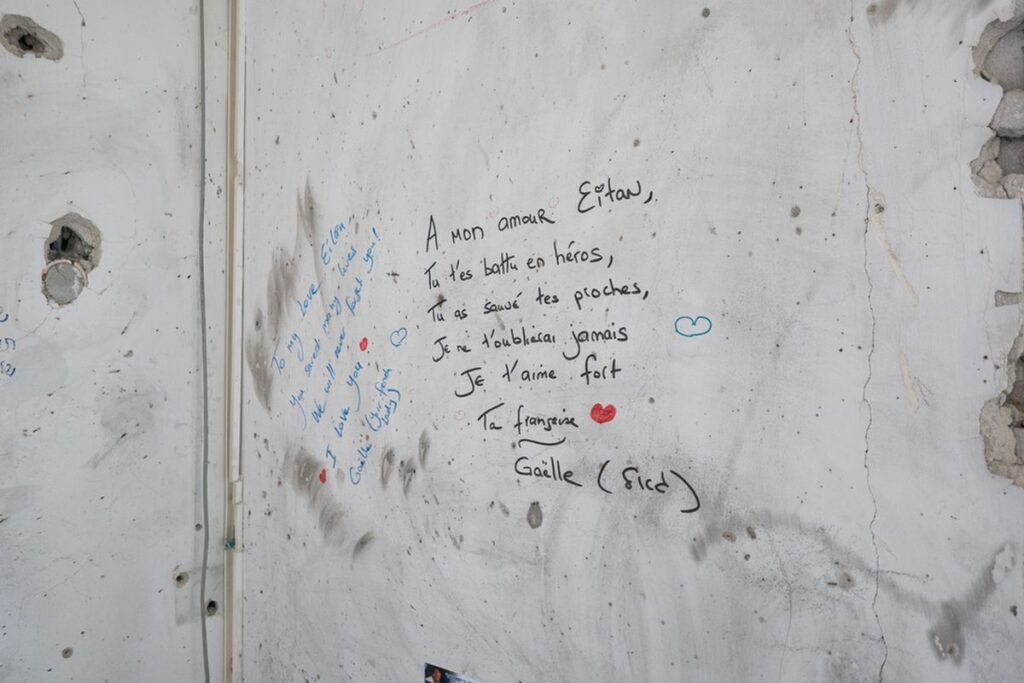 To my love Eitan,
You saved many lives
We will never forget you!
I love you
Gaëlle (your french
lady)
A mon amour Eitan,
Tu t'es battu en héros,
Tu as sauvé tes proches,
Je ne t'oublierai jamais
Je t'aime fort
Ta française
Gaëlle